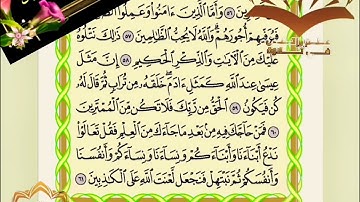 رِينَ ٥٦ وَأَمَّا ٱلَّذِينَ ءَامَنُوا۟ وَعَمِلُوا۟
فَيُوَفِّيهِمْ أُجُورَهُمْ وَٱللَّهُ لَا يُحِبُّ ٱلظَّـٰلِمِينَ ٥٧ ذَٰلِكَ نَتْلُوهُ
عَلَيْكَ مِنَ ٱلْـَٔايَـٰتِ وَٱلذِّكْرِ ٱلْحَكِيمِ ٥٨ إِنَّ مَثَلَ
عِيسَىٰ عِندَ ٱللَّهِ كَمَثَلِ ءَادَمَ خَلَقَهُۥ مِن تُرَابٍ ثُمَّ قَالَ لَهُۥ
كُن فَيَكُونُ ٥٩ ٱلْحَقُّ مِن رَّبِّكَ فَلَا تَكُن مِّنَ ٱلْمُمْتَرِينَ
٦٠ فَمَنْ حَآجَّكَ فِيهِ مِنۢ بَعْدِ مَا جَآءَكَ مِنَ ٱلْعِلْمِ فَقُلْ تَعَالَوْا۟
نَدْعُ أَبْنَآءَنَا وَأَبْنَآءَكُمْ وَنِسَآءَنَا وَنِسَآءَكُمْ وَأَنفُسَنَا
وَأَنفُسَكُمْ ثُمَّ نَبْتَهِلْ فَنَجْعَل لَّعْنَتَ ٱللَّهِ عَلَى ٱلْكَـٰذِبِينَ ٦١